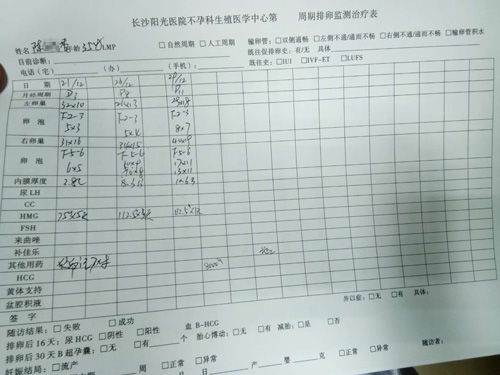 长沙阳光医院不孕科生殖医学中心第 周期排卵监测治疗表
姓名 年龄 35岁 LMP □自然周期 □人工周期 输卵管:□双侧通畅 □左侧不通/通而不畅 □右侧不通/通而不畅 □输卵管积水
目前诊断: 既往促排卵史:有/无 具体
电话(宅) (办) (手机): 既往史:□IUI □IVF-ET □LUFS
日期 21/12 26/12 29/12
月经周期 D3 D8 D11
左卵巢 32x10
卵泡 F2-3 F2-3 F2-3
5x3 5x4 8x7
右卵巢 31x16 34x15
卵泡 F5-6 F5-6 F5-6
6x5 17x11
13x11
内膜厚度
尿LH
CC
HMG
FSH
来曲唑
补佳乐
其他用药
HCG
黄体支持
盆腔积液
随访结果:□失败 □成功 并以症:□无 □有 具体:
排卵后16天:尿HCG □阴性 □阳性 血B-HCG
排卵后30天B超孕囊:□无 □有 个 胎心搏动:□无 □有 减胎:□是 □否
妊娠结局:□流产 周 □正常 □异常 随访者:
月 日 产 婴 克 □正常 □异常